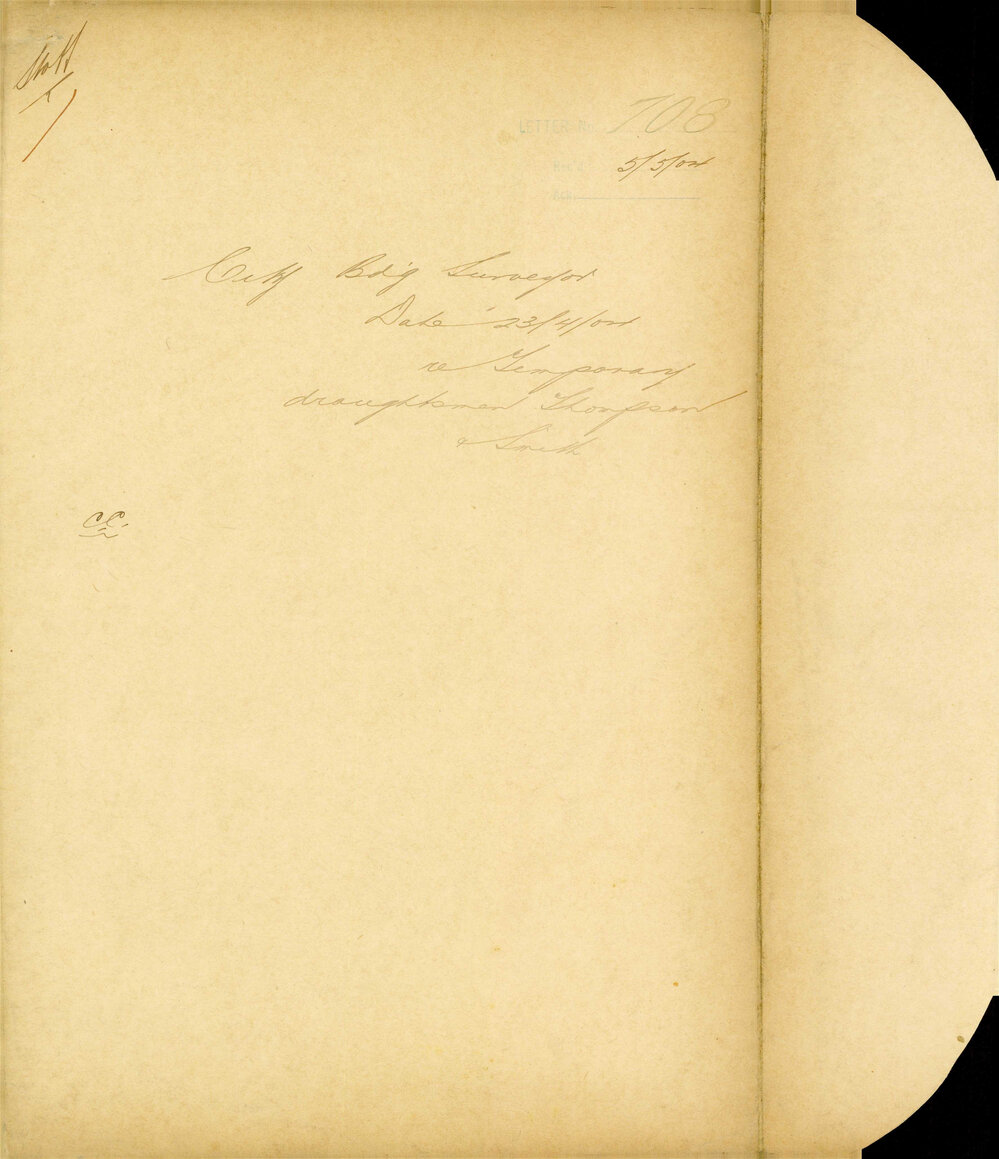 LETTER No. 706
Rec'd 5/5/04
Ack.
City Bdg Surveyor
Date 23/4/04
re Temporary
draughtsmen Thompson
& Smith
C.C.